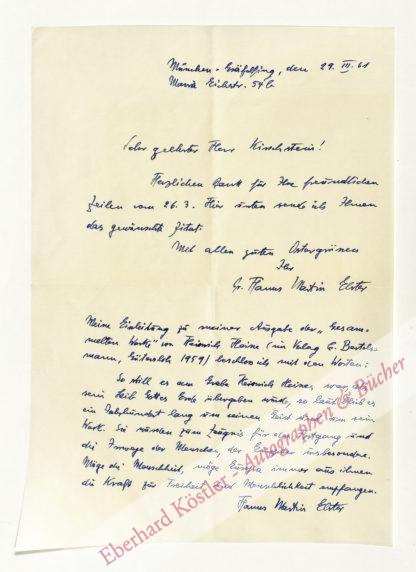 München - Gräfelfing, den 29. III. 61
Maria Eichstr. 54 b
Sehr geehrter Herr Kirschstein!
Herzlichen Dank für Ihre freundlichen
Zeilen vom 26.3. Hier unten sende ich Ihnen
das gewünschte Zitat.
Mit allen guten Ostergrüssen
Ihr
Dr. Hanns Martin Elster
Meine Einleitung zu meiner Ausgabe der „Gesam-
melten Werke" von Heinrich Heine (im Verlag C. Bertels-
mann, Gütersloh 1959) beschloss ich mit den Worten:
So still es am Grabe Heinrich Heines war, als
sein Leib Gottes Erde übergeben wurde, so laut blieb es
ein Jahrhundert lang um seinen Geist und um sein
Werk. Sie wurden zum Zeugnis für den und
die der Menschen, der Europäer insbesondere.
Möge die Menschheit, möge Europa immer aus ihnen
die Kraft zur Freiheit und Menschlichkeit empfangen.
Hanns Martin Elster
Eberhard Köstler - Autographen & Bücher